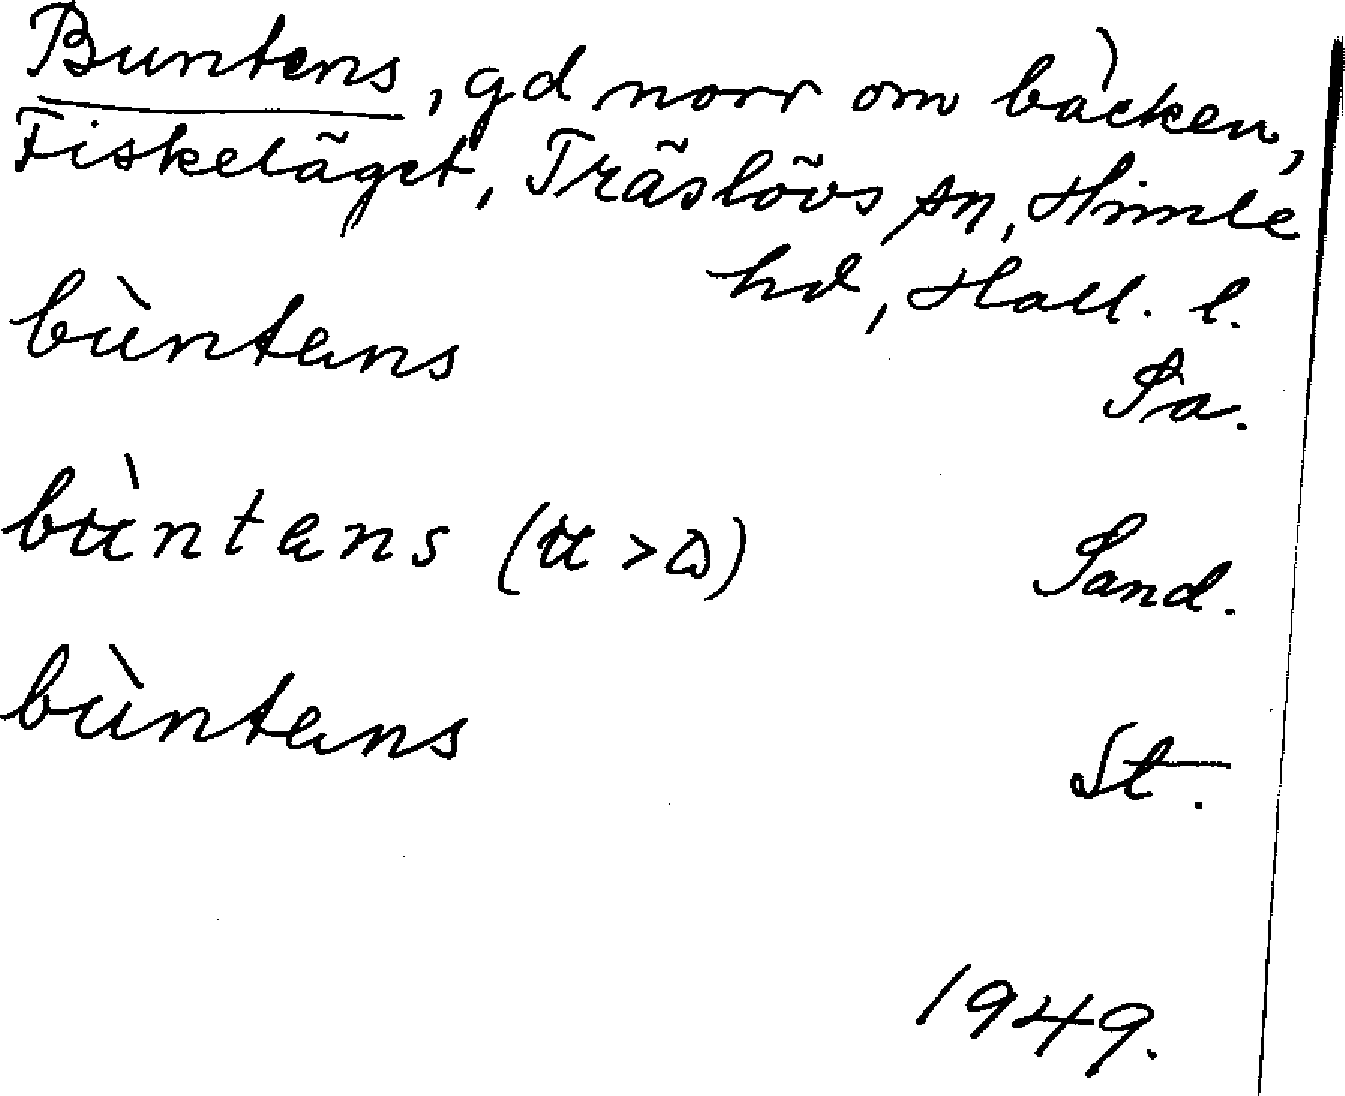 Buntens, gd norr om bäcken,
Fiskeläget, Träslövs sn, Himle
hd, Hall. l.
bùntens Pa.
bùntens (u > ɷ) Sand.
bùntens St.
1949.